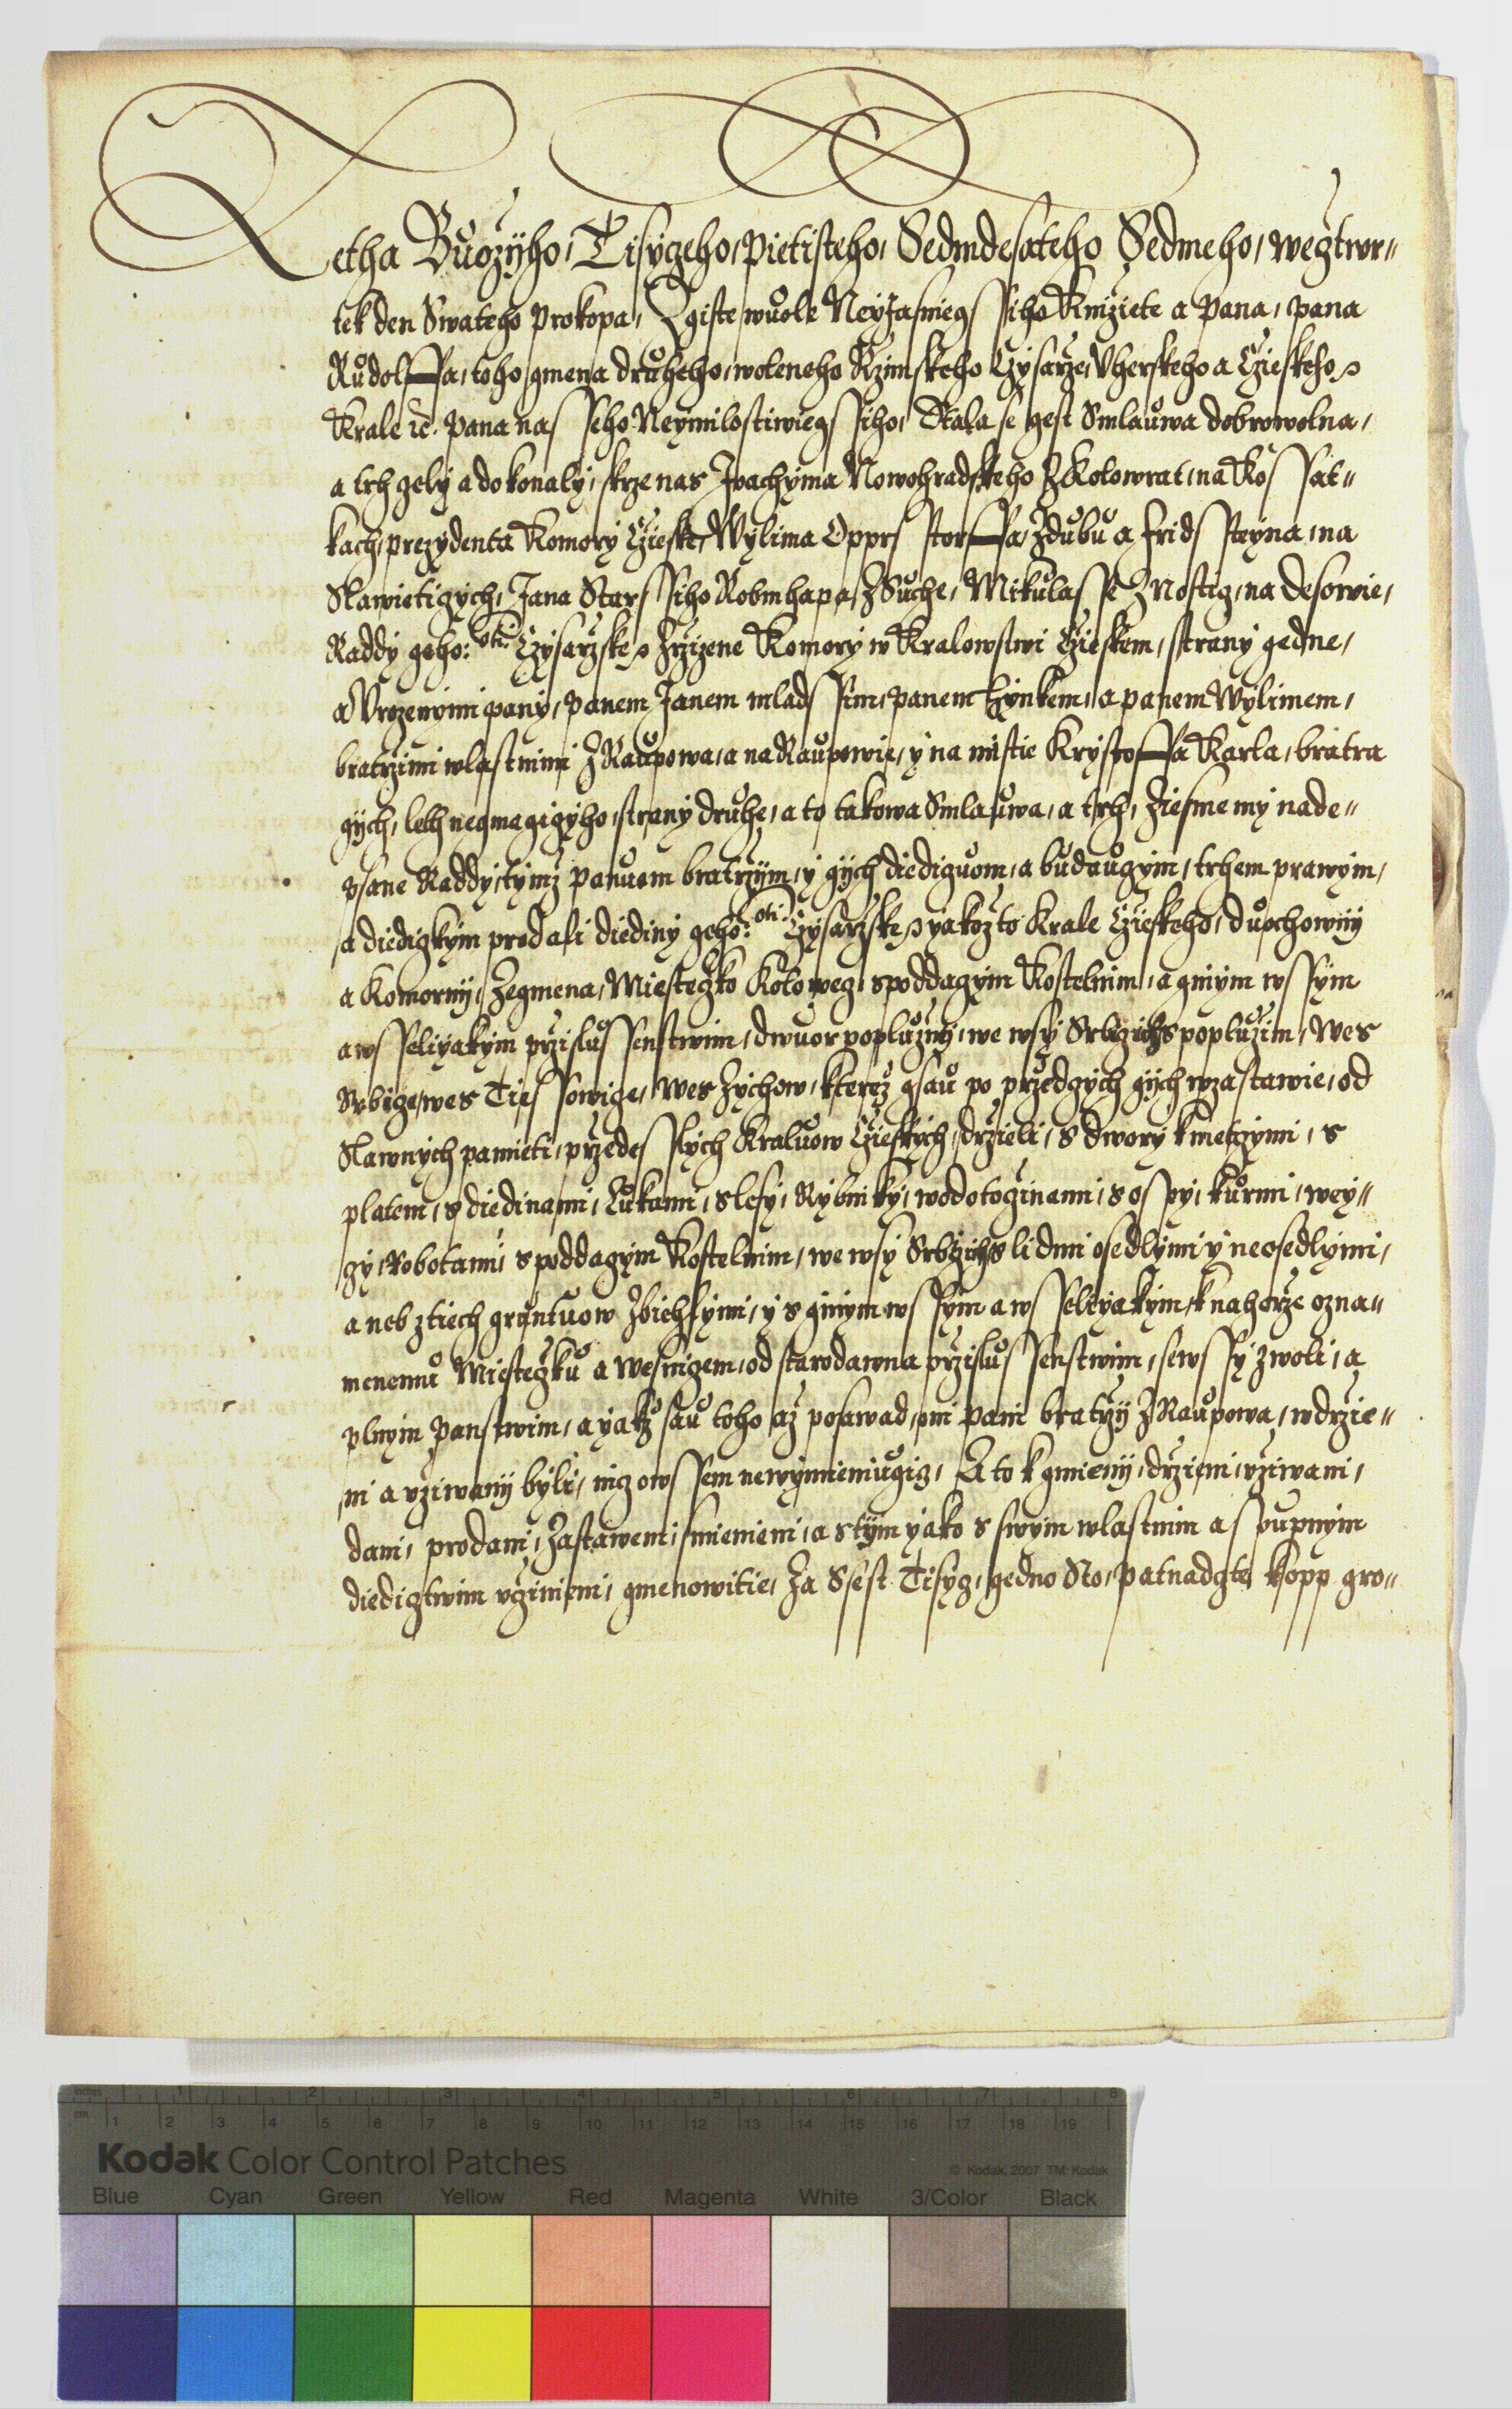 Letha Buozyho, Tisyczeho, Pietisteho, Sedmdesateho Sedmeho, wegtwr-
tek den Swateho Prokopa, Zgiste wuole Neyjasniegssiho Knizete a Pana, pana
Rudolffa, toho gmena druheho, woleneho Rzimskeho Czysarze, Uherskeho a Czieskeho
Krale ꝛc. Pana nasseho Neymilostiwiegssiho, Stala se gest Smlauwa dobrowolna,
a trh gely a dokonaly, skrze nas Joachyma Nowohradskeho Z Kolowrat, na Kossat-
kach, prezydenta Komory Czieske, Wylima Opprstorffa, Zdubu a Fridssteyna, na
Slawietigych, Jana Starssiho Robmhapa, Z Suche, Mikulasse Z Nostig, na Desowie,
Raddy geho: Czysarzske Zrzizene Komory w Kralowstwi Czieskem, strany gedne,
a Urozenymi pany, Panem Janem mladssim, panem Hynkem, a panem Wylimem,
bratrzimi wlastnimi Z Raupowa, a na Raupowie, y na mistie Krystoffa Karla, bratra
gych, leth negmagigyho, strany druhe, a to takowa Smlauwa, a trh, Ziesme my nade-
psane Raddy, tymz panuom bratrzym, y gych diediguom, a budaugym, trhem prawym,
a diedigkym prodali diediny geho: Czysarzske yakozto Krale Czieskeho, duochowny
a Komorny, Zegmena, Miestegko Koloweg, s poddagym Kostelnim, a ginym wssym
a wsseliyakym przislussenstwim, dwuor popluzny, we wsy Srbizich s popluzim, Wes
Srbize, wes Tiessowige, Wes Zychow, kterez gsau po przedgych gych w zastawie, od
Slawnych pamieti, przedesslych Kraluow Czieskych, drzieli, s dwory kmetzymi, s
platem, s diedinami, Lukami, s lesy, Rybniky, wodotoginami, s osspy, kurmi, wey-
gy, robotami, s poddagym Kostelnim, we wsy Srbizich s lidmi osedlymi y neosedlymi,
aneb z tiech gruntuow Zbiehlymi, y s ginym wssym a wsseliyakym, k nahorze ozna-
menemu Miestegku a Wesnigem, od starodawna przislussenstwim, se wssy zwoli, a
plnym Panstwim, a yakz sau toho az posawad, oni Pani bratrzy Z Raupowa, w drzie-
ni a uziwany byli, nigowssem newymieniugig, A to k gmieny, drzieni, uziwani,
dani, prodani, Zastaweni, smienieni, a s tym yako s swym wlastnim a supnym
diedigtwim uginieni, gmenowitie, Za Ssest Tisyg, gedno Sto, patnadgte kopp gro-
Kodak Color Control Patches
© Kodak, 2007 TM: Kodak
Blue Cyan Green Yellow Red Magenta White 3/Color Black